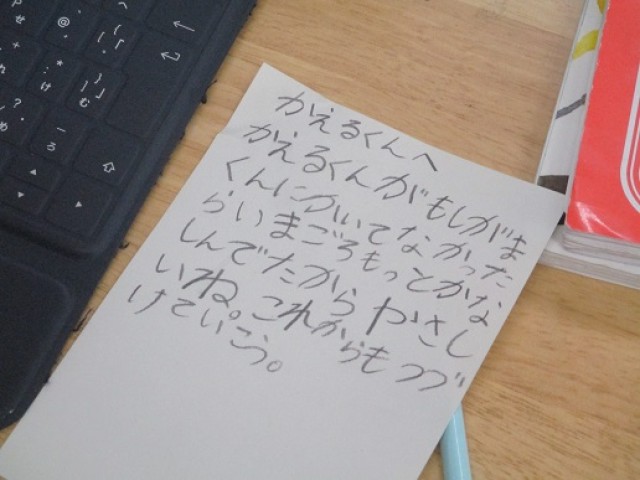 かえるくんへ
かえるくんがもしがま
くんにかいてなかった
らいまごろもっとかな
しんでたからやさし
いね。これからもつづ
けていこう。